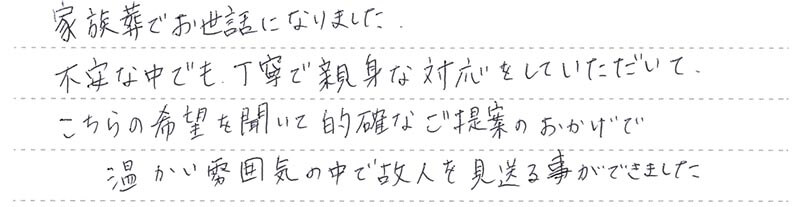 家族葬でお世話になりました.
不安な中でも、丁寧で親身な対応をしていただいて、
こちらの希望を聞いて的確なご提案のおかげで
温かい雰囲気の中で故人を見送る事ができました